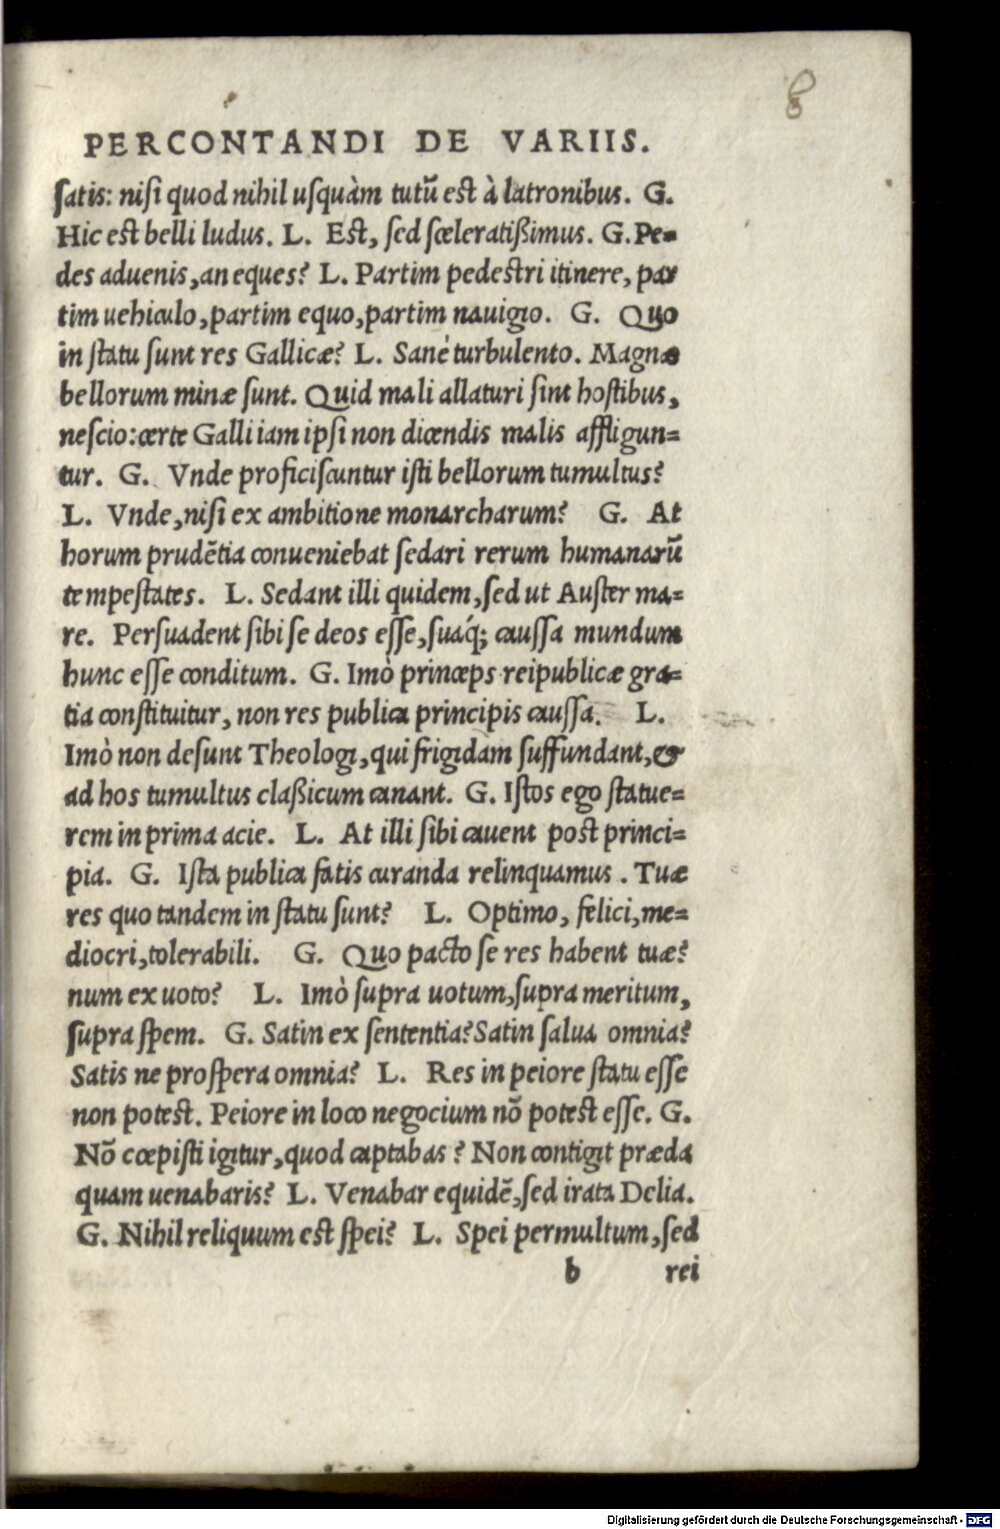 8
PERCONTANDI DE VARIIS.
ſatis: niſi quod nihil uſquàm tutũ eſt à latronibus. G.
Hic eſt belli ludus. L. Eſt, ſed ſceleratißimus. G. Pe-
des aduenis, an eques? L. Partim pedeſtri itinere, par
tim uehiculo, partim equo, partim nauigio. G. Quo
in ſtatu ſunt res Gallicæ? L. Sanè turbulento. Magnæ
bellorum minæ ſunt. Quid mali allaturi ſint hoſtibus,
neſcio: certe Galli iam ipſi non dicendis malis affligun=
tur. G. Vnde proficiſcuntur iſti bellorum tumultus?
L. Vnde, niſi ex ambitione monarcharum? G. At
horum prudẽtia conueniebat ſedari rerum humanarũ
tempeſtates. L. Sedant illi quidem, ſed ut Auſter ma=
re. Perſuadent ſibi ſe deos eſſe, ſuáq; cauſſa mundum
hunc eſſe conditum. G. Imò princeps reipublicæ gra=
tia conſtituitur, non res publica principis cauſſa. L.
Imò non deſunt Theologi, qui frigidam ſuffundant, &
ad hos tumultus claßicum canant. G. Iſtos ego ſtatue=
rem in prima acie. L. At illi ſibi cauent poſt princi=
pia. G. Iſta publica fatis curanda relinquamus. Tuæ
res quo tandem in ſtatu ſunt? L. Optimo, felici, me=
diocri, tolerabili. G. Quo pacto ſe res habent tuæ?
num ex uoto? L. Imò ſupra uotum, ſupra meritum,
ſupra ſpem. G. Satin ex ſententia? Satin ſalua omnia?
Satis ne proſpera omnia? L. Res in peiore ſtatu eſſe
non poteſt. Peiore in loco negocium nõ poteſt eſſe. G.
Nõ cœpiſti igitur, quod captabas? Non contigit præda
quam uenabaris? L. Venabar equidẽ, ſed irata Delia.
G. Nihil reliquum eſt ſpei? L. Spei permultum, ſed
b rei
Digitalisierung gefördert durch die Deutsche Forschungsgemeinschaft - DFG